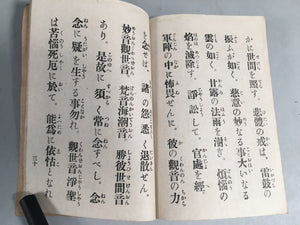 かに世間を照す。悲體の戒は、雷鼓の
振ふが如く、慈意の妙なる事大いなる
雲の如し、甘露の法雨を澍ぎ、煩惱の
焰を滅除す。諍訟して、官處を經、
軍陣の中に怖畏せんに、彼の觀音の力
を念ぜば、諸の怨悉く退散せん。
妙音觀世音、梵音海潮音、勝彼世間音
あり。是故に須く常に念ずべし。念
念に疑ひを生ずる事勿れ、觀世音淨聖
は苦惱死厄に於て、能く爲に依怙となれ
三十